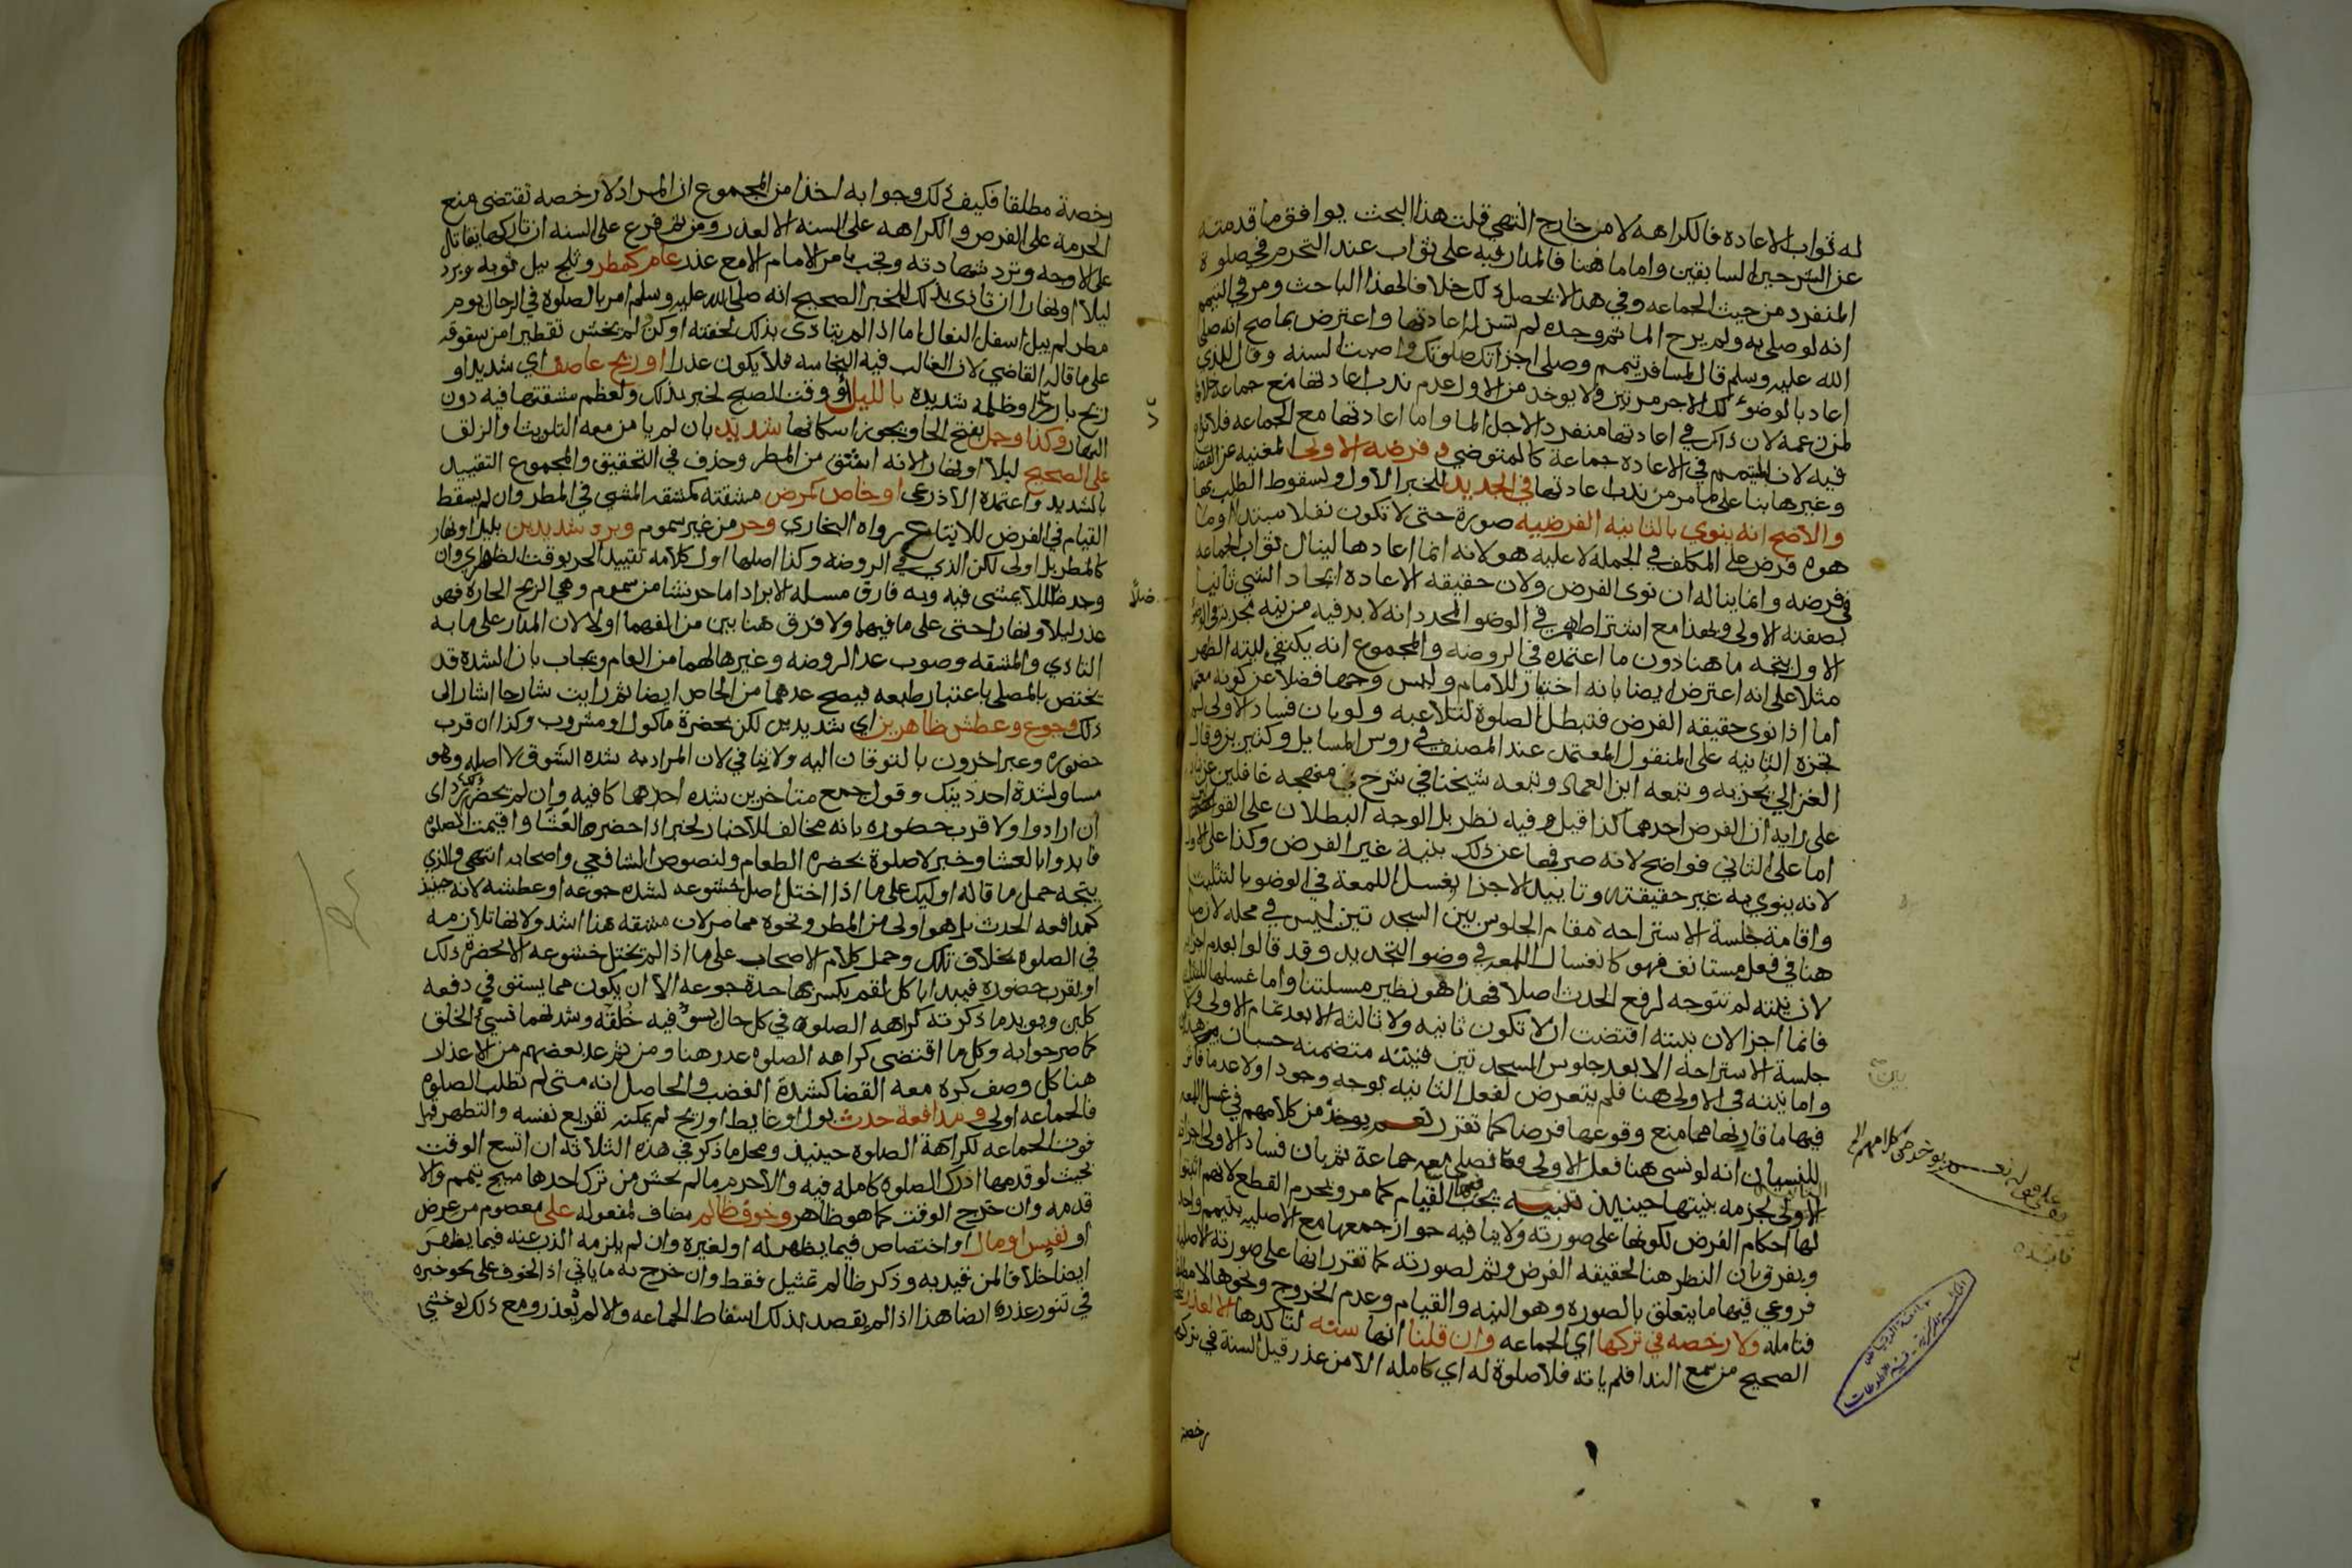 له ثواب الاعاده فالكراهه لا من خارج انتهى قلت هذا البحث يوافق ما قدمته
عن الشرحين السابقين واما ما هنا فالمدار فيه على ثواب عند التحرم في صلوة
المنفرد من حيث الجماعه وفي هذا لا يحصل ذلك خلافا لهذا الباحث ومر في التيمم
انه لو صلى به ولم يرح الما ثم وجده لم تسن له اعادتها واعترض بما صح انه صلى
الله عليه وسلم قال لمسافر تيمم وصلى اجزاتك صلوتك واصبت السنه وقال للذي
اعاد بالوضوء لك الاجر مرتين ولا يوخذ من الاول عدم ندب اعادتها مع جماعه خلافا
لمن زعمه لان ذاك في اعادتها منفردا لاجل الما واما اعادتها مع الجماعه فلا
فيه لان المتيمم في الاعاده جماعة كالمتوضي وفرضه الاولى المغنيه عن القضا
وغيرها بنا على ما مر من ندب اعادتها في الجديد للخبر الاول ولسقوط الطلب بها
والاصح انه ينوي بالثانيه الفرضيه صورة حتى لا تكون نفلا مبتدا او ما
هو فرض على المكلف في الجمله لا عليه هو لانه انما اعادها لينال ثواب الجماعه
في فرضه وانما يناله ان نوى الفرض ولان حقيقه الاعاده ايجاد الشي ثانيا
بصفته الاولى وبهذا مع اشتراطهم في الوضو المجدد انه لا بد فيه من نيه مجزئه في الوضو
الاول يتجه ما هنا دون ما اعتمده في الروضه والمجموع انه يكتفى بنيه الظهر
مثلا على انه اعترض ايضا بانه اختيار للامام وليس وجها فضلا عن كونه معتمد
اما اذا نوى حقيقه الفرض فتبطل الصلوة لتلاعبه ولو بان فساد الاولى لم
تجزه الثانيه على المنقول المعتمد عند المصنف في روس المسايل وكثيرين وقال
الغزالي تجزيه وتبعه ابن العماد وتبعه شيخنا في شرح منهجه غافلين عن بناه
على رايه ان الفرض احدهما كذا قيل وفيه نظر بل الوجه البطلان على القولين
اما على الثاني فواضح لانه صرفها عن ذلك بنيه غير الفرض وكذا على الاول
لانه ينوي به غير حقيقته وتاييد الاجزا بغسل اللمعة في الوضو بالتثليث
واقامة جلسة الاستراحه مقام الجلوس بين السجدتين ليس في محله لان ما
هنا في فعل مستانف فهو كانغسال اللمعه في وضو التجديد وقد قالوا بعدم اجزا
لان نيته لم تتوجه لرفع الحدث اصلا فهذا هو نظير مسلتنا واما غسلها للتثليث
فانما اجزا لان نيته اقتضت ان لا تكون ثانيه ولا ثالثه الا بعد تمام الاولى ولا
جلسة الاستراحه الا بعد جلوس السجدتين فنيته متضمنه حسبان هذين
واما نيته في الاولى هنا فلم يتعرض لفعل الثانيه بوجه وجودا ولا عدما فاثر
فيها ما قارنها مما منع وقوعها فرضا كما تقرر نعم يوخذ من كلامهم في غسل اللمعه
للنسيان انه لو نسى هنا فعل الاولى فصلى مع جماعة ثم بان فساد الاولى اجزاه
الثانيه لجزمه بنيتها حينيذ تنبيه يجب فيها القيام كما مر ويحرم القطع لانهم اثبتوا
لها احكام الفرض لكونها على صورته ولا ينافيه جواز جمعها مع الاصليه بتيمم واحد
ويفرق بان النظر هنا لحقيقه الفرض وثم لصورته كما تقرر انها على صورته الاصليه
فروعي فيها ما يتعلق بالصوره وهو النيه والقيام وعدم الخروج ونحوها لا مطلقا
فتامله ولا رخصه في تركها اي الجماعه وان قلنا انها سنه لتاكدها الا لعذر
الصحيح من سمع الندا فلم ياته فلا صلوة له اي كامله الا من عذر قيل السنة في تركها
رخصة
على قوله نعم يوخذ من كلامهم الخ
فايده
جامعة الرياض
قسم المخطوطات
رخصة مطلقا فكيف ذلك وجوابه اخذا من المجموع ان المراد لا رخصه تقتضي منع
الحرمة على الفرض والكراهه على السنه الا لعذر ومن ثم فرع على السنه ان تاركها يقاتل
على الاوجه وترد شهادته وتجب بامر الامام الا مع عذر عام كمطر وثلج يبل ثوبه وبرد
ليلا او نهارا ان تاذى بذلك للخبر الصحيح انه صلى الله عليه وسلم امر بالصلوة في الرحال يوم
مطر لم يبل اسفل النعال اما اذا لم يتاذى بذلك لخفته او كن ولم يخش تقطيرا من سقوفه
على ما قاله القاضي لان الغالب فيه النجاسه فلا يكون عذرا او ريح عاصف اي شديد او
ريح بارد او ظلمه شديده بالليل او وقت الصبح لخبر بذلك ولعظم مشقتها فيه دون
النهار وكذا وحل بفتح الحا ويجوز اسكانها شديد بان لم يامن معه التلويث والزلق
على الصحيح ليلا او نهارا لانه اشق من المطر وحذف في التحقيق والمجموع التقييد
بالشديد واعتمده الاذرعي او خاص كمرض مشقته كمشقه المشي في المطر وان لم يسقط
القيام في الفرض للاتباع رواه البخاري وحر من غير سموم وبرد شديدين بليل او نهار
كالمطر بل اولى لكن الذي في الروضه وكذا اصلها اول كلامه تقييد الحر بوقت الظهر اي وان
وجد ظلا يمشي فيه وبه فارق مسله الابراد اما حر نشا من سموم وهي الريح الحاره فهو
عذر ليلا ونهارا حتى على ما فيهما ولا فرق هنا بين من الفهما او لا لان المدار على ما به
التاذي والمشقه وصوب عد الروضه وغيرها لهما من العام ويجاب بان الشده قد
تختص بالمصلى باعتبار طبعه فيصح عدهما من الخاص ايضا ثم رايت شارحا اشار الى
ذلك وجوع وعطش ظاهرين اي شديدين لكن بحضرة ماكول او مشروب وكذا ان قرب
حضوره وعبر اخرون بالتوقان اليه ولا ينافي لان المراد به شده الشوق لا اصله وهو
مساو لشدة احد ذينك وقول جمع متاخرين شده احدهما كافيه وان لم يحضر ذلك رد اي
ان ارادوا ولا قرب حضوره بانه مخالف للاخبار لخبر اذا حضر العشا واقيمت الصلوه
فابدوا بالعشا وخبر لا صلوة بحضره الطعام ولنصوص الشافعي واصحابه انتهى والذي
يتجه حمل ما قاله اوليك على ما اذا اختل اصل خشوعه لشده جوعه او عطشه لانه حينيذ
كمدافعه الحدث بل هو اولى من المطر ونحوه مما مر لان مشقه هذا اشد ولانها تلازمه
في الصلوه بخلاف تلك وحمل كلام الاصحاب على ما اذا لم يختل خشوعه الا بحضرة ذلك
او بقرب حضوره فيبدا باكل لقم يكسر بها حدة جوعه الا ان يكون مما يستوفي دفعه
كلبن ويويد ما ذكرته كراهه الصلوه في كل حال يسوء فيه خلقه وشدتهما تسيئ الخلق
كما صرحوا به وكل ما اقتضى كراهه الصلوه عذر هنا ومن ثم عد بعضهم من الاعذار
هنا كل وصف كره معه القضا كشدة الغضب والحاصل انه متى لم تطلب الصلوه
فالجماعه اولى ومدافعة حدث بول او غايط او ريح لم يمكنه تفريغ نفسه والتطهر قبل
فوت الجماعه لكراهة الصلوه حينيذ ومحل ما ذكر في هذه الثلاثه ان اتسع الوقت
بحيث لو قدمها ادرك الصلوه كامله فيه والا حرم ما لم يخش من ترك احدها مبيح تيمم والا
قدمه وان خرج الوقت كما هو ظاهر وخوف ظالم مضاف لمفعوله على معصوم من عرض
او نفس او مال او اختصاص فيما يظهر له او لغيره وان لم يلزمه الذب عنه فيما يظهر
ايضا خلافا لمن قيد به وذكر ظالم تمثيل فقط وان خرج به ما ياتي اذ الخوف على نحو خبزه
في تنور عذر ايضا هذا اذا لم يقصد بذلك اسقاط الجماعه والا لم يعذر ومع ذلك لو خشي